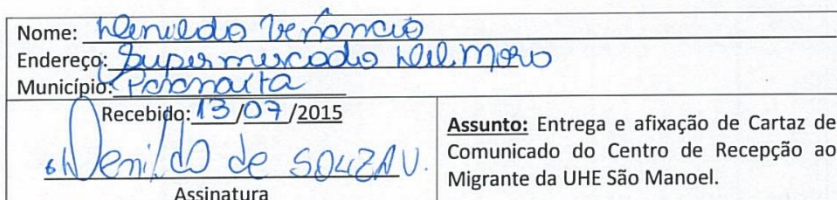 Nome: Denildo Venâncio
Endereço: Supermercado Del Moro
Município: Paranaíta
Recebido: 13/07/2015
Denildo de SOUZA V.
Assinatura
Assunto: Entrega e afixação de Cartaz de
Comunicado do Centro de Recepção ao
Migrante da UHE São Manoel.